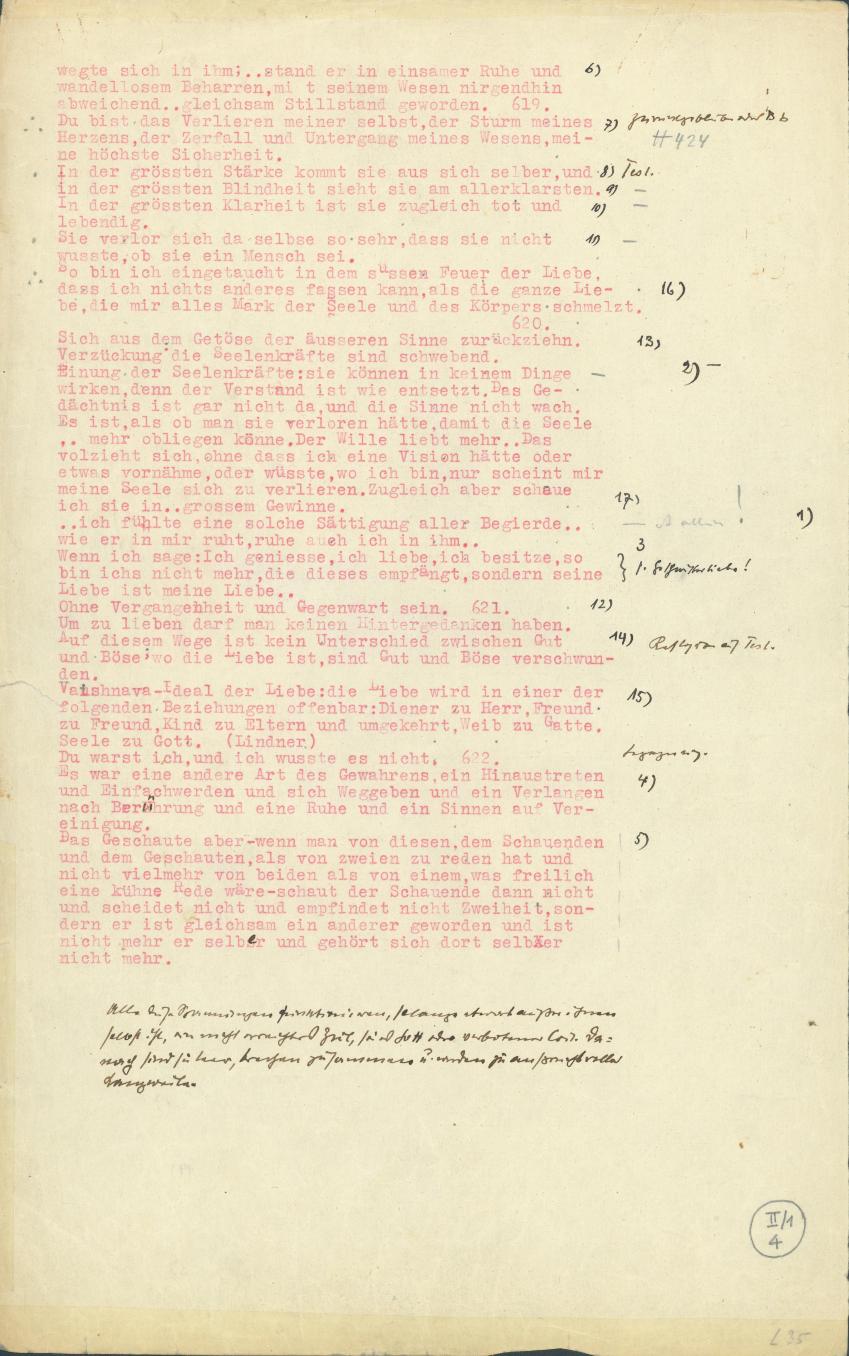 wegte sich in ihm;..stand er in einsamer Ruhe und 6)
wandellosem Beharren,mi t seinem Wesen nirgendhin
abweichend..gleichsam Stillstand geworden. 619.
Du bist das Verlieren meiner selbst,der Sturm meines 7)
Herzens,der Zerfall und Untergang meines Wesens,mei- H 424
ne höchste Sicherheit.
In der grössten Stärke kommt sie aus sich selber,und 8) Test.
in der grössten Blindheit sieht sie am allerklarsten. 9) —
In der grössten Klarheit ist sie zugleich tot und 10) —
lebendig.
Sie verlor sich da selbse so sehr,dass sie nicht 11) —
wusste,ob sie ein Mensch sei.
So bin ich eingetaucht in dem süssen Feuer der Liebe,
dass ich nichts anderes fassen kann,als die ganze Lie- 16)
be,die mir alles Mark der Seele und des Körpers schmelzt.
620.
Sich aus dem Getöse der äusseren Sinne zurückziehn. 13)
Verzückung die Seelenkräfte sind schwebend.
Einung der Seelenkräfte:sie können in keinem Dinge — 2) —
wirken,denn der Verstand ist wie entsetzt.Das Ge-
dächtnis ist gar nicht da,und die Sinne nicht wach.
Es ist,als ob man sie verloren hätte,damit die Seele
.. mehr obliegen könne.Der Wille liebt mehr..Das
volzieht sich,ohne dass ich eine Vision hätte oder
etwas vornähme,oder wüsste,wo ich bin,nur scheint mir
meine Seele sich zu verlieren.Zugleich aber schaue
ich sie in..grossem Gewinne. 17)
..ich fühlte eine solche Sättigung aller Begierde.. — ! 1)
wie er in mir ruht,ruhe auch ich in ihm.. 3
Wenn ich sage:Ich geniesse,ich liebe,ich besitze,so
bin ichs nicht mehr,die dieses empfängt,sondern seine
Liebe ist meine Liebe..
Ohne Vergangehheit und Gegenwart sein. 621. 12)
Um zu lieben darf man keinen Hintergedanken haben.
Auf diesem Wege ist kein Unterschied zwischen Gut 14)
und Böse;wo die Liebe ist,sind Gut und Böse verschwun-
den.
Vaishnava-Ideal der Liebe:die Liebe wird in einer der 15)
folgenden Beziehungen offenbar:Diener zu Herr,Freund
zu Freund,Kind zu Eltern und umgekehrt,Weib zu Gatte.
Seele zu Gott. (Lindner)
Du warst ich,und ich wusste es nicht. 622.
Es war eine andere Art des Gewahrens,ein Hinaustreten 4)
und Einfachwerden und sich Weggeben und ein Verlangen
nach Berührung und eine Ruhe und ein Sinnen auf Ver-
einigung.
Das Geschaute aber-wenn man von diesen,dem Schauenden 5)
und dem Geschauten,als von zweien zu reden hat und
nicht vielmehr von beiden als von einem,was freilich
eine kühne Rede wäre-schaut der Schauende dann nicht
und scheidet nicht und empfindet nicht Zweiheit,son-
dern er ist gleichsam ein anderer geworden und ist
nicht mehr er selber und gehört sich dort selbXer
nicht mehr.
Alle diese Spannungen funktionieren, solange etwas außer ihnen
selbst ist, ein nicht erreichtes Ziel, sei es Gott oder verbotene Lust. Da=
nach sind sie leer, brechen zusammen u. werden zu anspruchsvoller
Langweile.
II/1
4
L 35